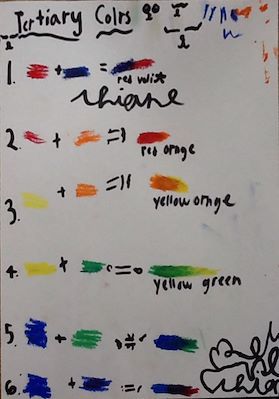 Tertiary Colrs
1. + =
red
thiane
2. + =
red ornge
3. + =
yellow ornge
4. + =
yellow green
5. + =
6. + =